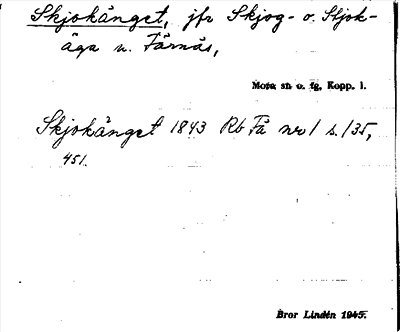 Skjokänget, jfr Skjog- o. Skjok-
äga u. Färnäs,
Mora sn o. tg, Kopp. l.
Skjokänget 1843 Rb Få nr 1 s. 135,
451.
Bror Lindén 1945.